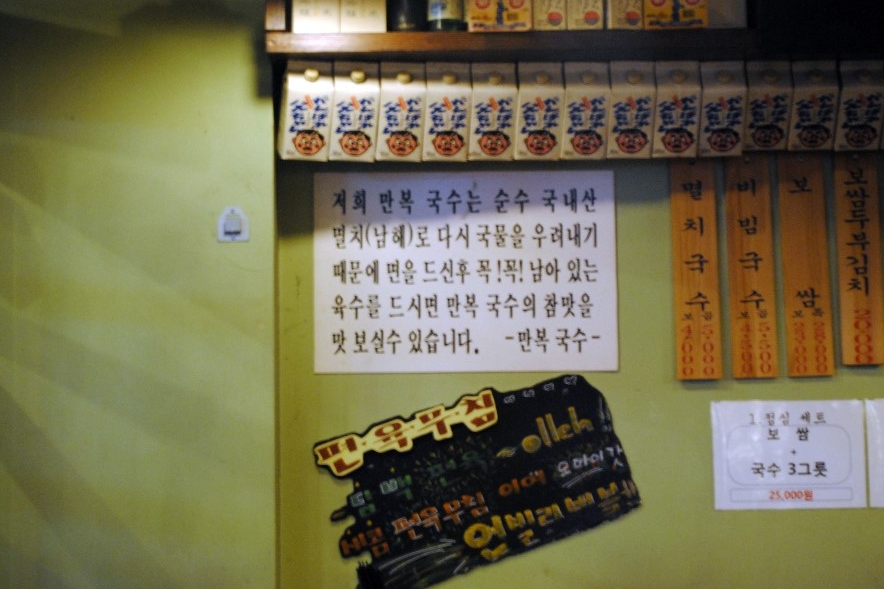 저희 만복 국수는 순수 국내산
멸치(남해)로 다시 국물을 우려내기
때문에 면을 드신후 꼭!꼭! 남아 있는
육수를 드시면 만복 국수의 참맛을
맛 보실수 있습니다. -만복 국수-
멸치국수
보 4,000
곱 5,000
비빔국수
보 4,500
곱 5,500
보쌈
보쌈두부김치
편·육·무·침
olleh
오마이갓
새콤 편육무침 이에
언빌리버블!!
1. 점심 세트
보 쌈
+
국수 3그릇
25,000원